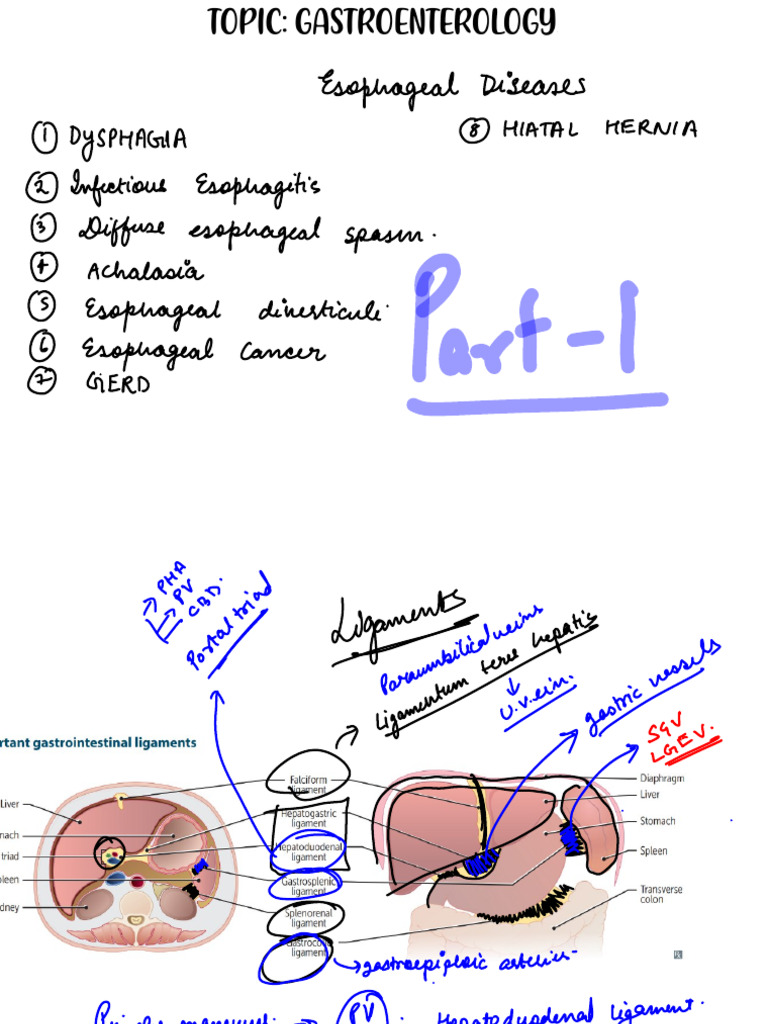 TOPIC: GASTROENTEROLOGY
Esophageal Diseases
① DYSPHAGIA
⑧ HIATAL HERNIA
② Infectious Esophagitis
③ Diffuse esophageal spasm.
④ Achalasia
⑤ Esophageal diverticuli
⑥ Esophageal Cancer
⑦ GERD
Part-1
PHA
PV
CBD.
Portal triad
Ligaments
Paraumbilical veins
Ligamentum teres hepatis
U.vein.
gastric vessels
SGV
LGEV.
rtant gastrointestinal ligaments
Falciform
ligament
Diaphragm
Liver
Liver
Hepatogastric
ligament
Stomach
mach
triad
Hepatoduodenal
ligament
Spleen
pleen
Gastrosplenic
ligament
Transverse
colon
dney
Splenorenal
ligament
Gastroco
ligament
gastroepiploic arteries-
PV
Hepatoduodenal ligament.